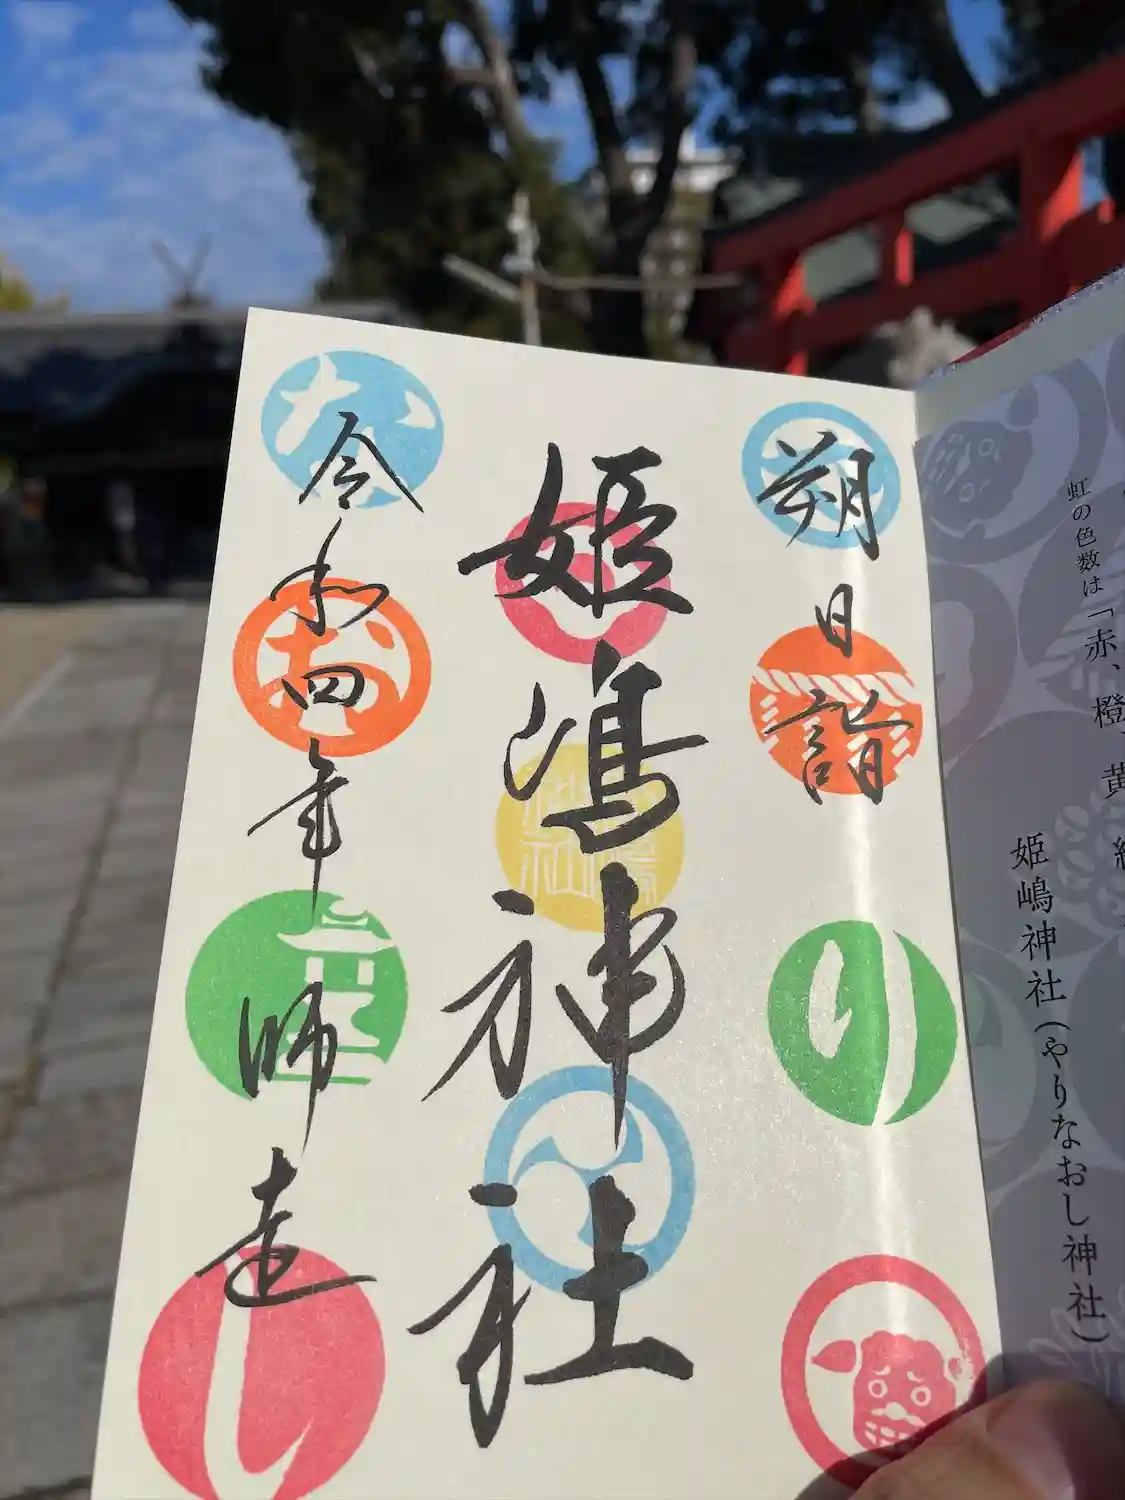 虹の色数は「赤、橙、黄、
姫嶋神社(やりなおし神社)
朔日詣
り
姫嶋神社
令和四年師走
な
お
し